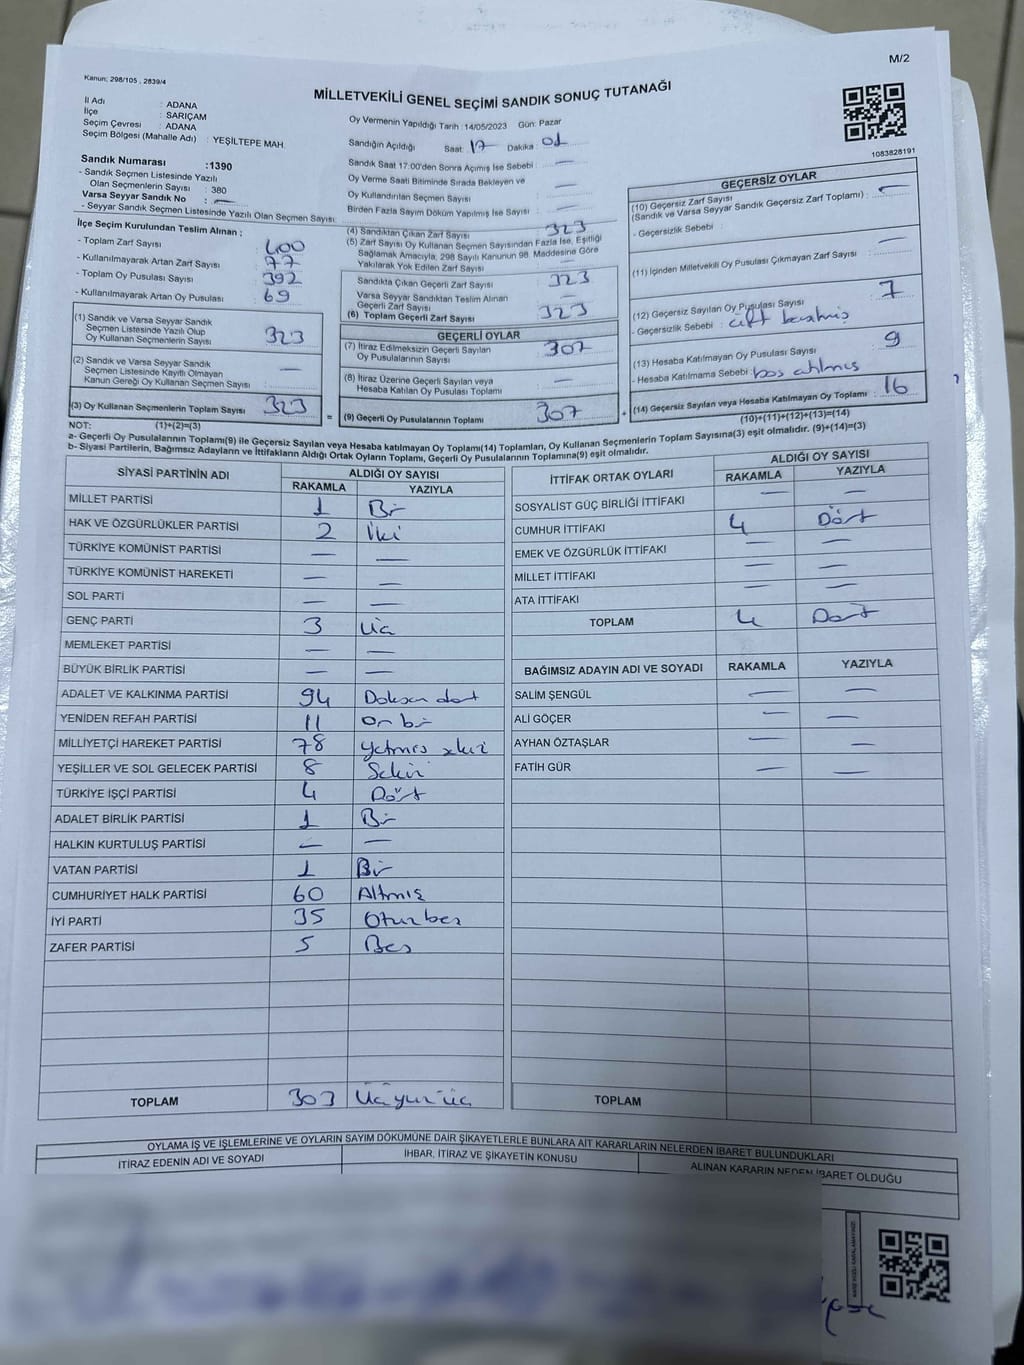 M/2
Kanun: 298/105 , 2839/4
MİLLETVEKİLİ GENEL SEÇİMİ SANDIK SONUÇ TUTANAĞI
İl Adı : ADANA
İlçe : SARIÇAM
Seçim Çevresi : ADANA
Seçim Bölgesi (Mahalle Adı) : YEŞİLTEPE MAH.
Sandık Numarası :1390
- Sandık Seçmen Listesinde Yazılı
Olan Seçmenlerin Sayısı : 380
Varsa Seyyar Sandık No : —
- Seyyar Sandık Seçmen Listesinde Yazılı Olan Seçmen Sayısı
Oy Vermenin Yapıldığı Tarih :14/05/2023 Gün: Pazar
Sandığın Açıldığı Saat 17 Dakika 01
Sandık Saat 17:00'den Sonra Açılmış İse Sebebi —
Oy Verme Saati Bitiminde Sırada Bekleyen ve
Oy Kullandırılan Seçmen Sayısı —
Birden Fazla Sayım Döküm Yapılmış İse Sayısı —
1083828191
İlçe Seçim Kurulundan Teslim Alınan :
- Toplam Zarf Sayısı 400
- Kullanılmayarak Artan Zarf Sayısı 77
- Toplam Oy Pusulası Sayısı 392
- Kullanılmayarak Artan Oy Pusulası 69
(1) Sandık ve Varsa Seyyar Sandık
Seçmen Listesinde Yazılı Olup
Oy Kullanan Seçmenlerin Sayısı 323
(2) Sandık ve Varsa Seyyar Sandık
Seçmen Listesinde Kayıtlı Olmayan
Kanun Gereği Oy Kullanan Seçmen Sayısı —
(3) Oy Kullanan Seçmenlerin Toplam Sayısı 323
(4) Sandıktan Çıkan Zarf Sayısı 323
(5) Zarf Sayısı Oy Kullanan Seçmen Sayısından Fazla İse, Eşitliği
Sağlamak Amacıyla, 298 Sayılı Kanunun 98. Maddesine Göre
Yakılarak Yok Edilen Zarf Sayısı —
Sandıkta Çıkan Geçerli Zarf Sayısı 323
Varsa Seyyar Sandıktan Teslim Alınan
Geçerli Zarf Sayısı —
(6) Toplam Geçerli Zarf Sayısı 323
GEÇERLİ OYLAR
(7) İtiraz Edilmeksizin Geçerli Sayılan
Oy Pusulalarının Sayısı 307
(8) İtiraz Üzerine Geçerli Sayılan veya
Hesaba Katılan Oy Pusulası Toplamı —
= (9) Geçerli Oy Pusulalarının Toplamı 307
GEÇERSİZ OYLAR
(10) Geçersiz Zarf Sayısı
(Sandık ve Varsa Seyyar Sandık Geçersiz Zarf Toplamı) : —
- Geçersizlik Sebebi :
(11) İçinden Milletvekili Oy Pusulası Çıkmayan Zarf Sayısı —
(12) Geçersiz Sayılan Oy Pusulası Sayısı 7
- Geçersizlik Sebebi : çift basılmış
(13) Hesaba Katılmayan Oy Pusulası Sayısı 9
- Hesaba Katılmama Sebebi : boş atılmış
+ (14) Geçersiz Sayılan veya Hesaba Katılmayan Oy Toplamı : 16
NOT: (1)+(2)=(3)
(10)+(11)+(12)+(13)=(14)
a- Geçerli Oy Pusulalarının Toplamı(9) ile Geçersiz Sayılan veya Hesaba katılmayan Oy Toplamı(14) Toplamları, Oy Kullanan Seçmenlerin Toplam Sayısına(3) eşit olmalıdır. (9)+(14)=(3)
b- Siyasi Partilerin, Bağımsız Adayların ve İttifakların Aldığı Ortak Oyların Toplamı, Geçerli Oy Pusulalarının Toplamına(9) eşit olmalıdır.
SİYASİ PARTİNİN ADI ALDIĞI OY SAYISI
RAKAMLA YAZIYLA
MİLLET PARTİSİ 1 Bir
HAK VE ÖZGÜRLÜKLER PARTİSİ 2 İki
TÜRKİYE KOMÜNİST PARTİSİ — —
TÜRKİYE KOMÜNİST HAREKETİ — —
SOL PARTİ — —
GENÇ PARTİ 3 Üç
MEMLEKET PARTİSİ — —
BÜYÜK BİRLİK PARTİSİ — —
ADALET VE KALKINMA PARTİSİ 94 Doksan dört
YENİDEN REFAH PARTİSİ 11 On bir
MİLLİYETÇİ HAREKET PARTİSİ 78 Yetmiş sekiz
YEŞİLLER VE SOL GELECEK PARTİSİ 8 Sekiz
TÜRKİYE İŞÇİ PARTİSİ 4 Dört
ADALET BİRLİK PARTİSİ 1 Bir
HALKIN KURTULUŞ PARTİSİ — —
VATAN PARTİSİ 1 Bir
CUMHURİYET HALK PARTİSİ 60 Altmış
İYİ PARTİ 35 Otuz beş
ZAFER PARTİSİ 5 Beş
TOPLAM 303 Üçyüz üç
İTTİFAK ORTAK OYLARI ALDIĞI OY SAYISI
RAKAMLA YAZIYLA
SOSYALİST GÜÇ BİRLİĞİ İTTİFAKI — —
CUMHUR İTTİFAKI 4 Dört
EMEK VE ÖZGÜRLÜK İTTİFAKI — —
MİLLET İTTİFAKI — —
ATA İTTİFAKI — —
TOPLAM 4 Dört
BAĞIMSIZ ADAYIN ADI VE SOYADI RAKAMLA YAZIYLA
SALİM ŞENGÜL — —
ALİ GÖÇER — —
AYHAN ÖZTAŞLAR — —
FATİH GÜR — —
TOPLAM
OYLAMA İŞ VE İŞLEMLERİNE VE OYLARIN SAYIM DÖKÜMÜNE DAİR ŞİKAYETLERLE BUNLARA AİT KARARLARIN NELERDEN İBARET BULUNDUKLARI
İTİRAZ EDENİN ADI VE SOYADI İHBAR, İTİRAZ VE ŞİKAYETİN KONUSU ALINAN KARARIN NEDEN İBARET OLDUĞU